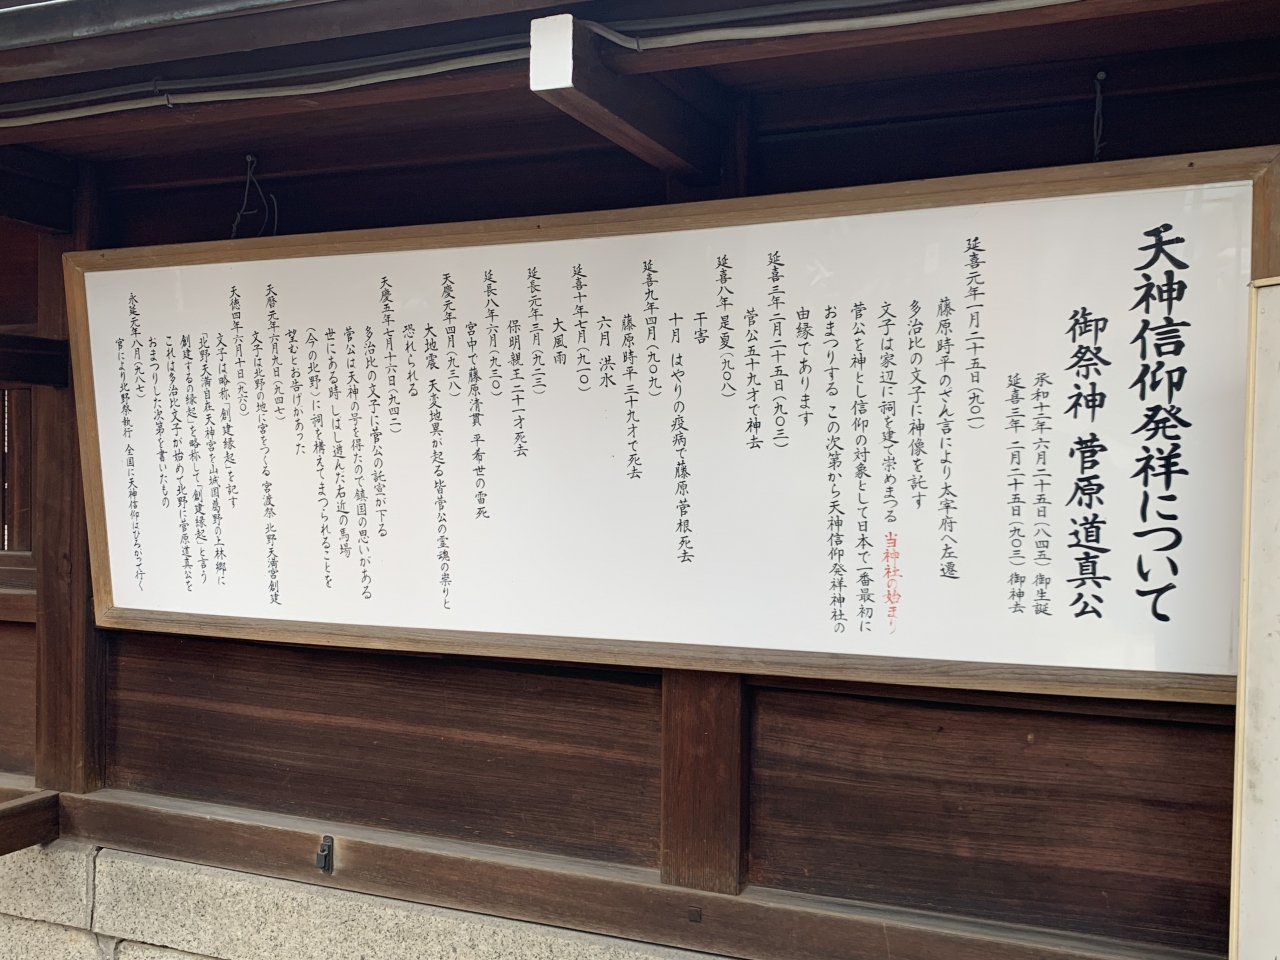 天神信仰発祥について
御祭神 菅原道真公
承和十二年六月二十五日(八四五)御生誕
延喜三年 二月二十五日(九〇三)御神去
延喜元年一月二十五日(九〇一)
藤原時平のざん言により太宰府へ左遷
多治比の文子に神像を託す
文子は家辺に祠を建て崇めまつる 当神社の始まり
菅公を神とし信仰の対象として日本で一番最初に
おまつりする この次第から天神信仰発祥神社の
由縁であります
延喜三年二月二十五日(九〇三)
菅公五十九才で神去
延喜八年 是夏(九〇八)
干害
十月 はやりの疫病で藤原菅根死去
延喜九年四月(九〇九)
藤原時平三十九才で死去
六月 洪水
延喜十年七月(九一〇)
大風雨
延長元年三月(九二三)
保明親王二十一才死去
延長八年六月(九三〇)
宮中で藤原清貫 平希世の雷死
天慶元年四月(九三八)
大地震 天変地異が起る皆菅公の霊魂の祟りと
恐れられる
天慶五年七月十六日(九四二)
多治比の文子に菅公の託宣が下る
菅公は天神の号を得たので鎮国の思いがある
世にある時 しばし遊んだ右近の馬場
(今の北野)に祠を構えてまつられることを
望むとお告げがあった
天暦元年六月九日(九四七)
文子は北野の地に宮をつくる 宮渡祭 北野天満宮創建
天徳四年六月十日(九六〇)
文子は略称「創建縁起」を記す
「北野天満自在天神宮を山城国葛野の上林郷に
創建するの縁起」を略称して、「創建縁起」と言う
これは多治比文子が始めて北野に菅原道真公を
おまつりした次第を書いたもの
永延元年八月(九八七)
官により北野祭執行 全国に天神信仰はひろがって行く